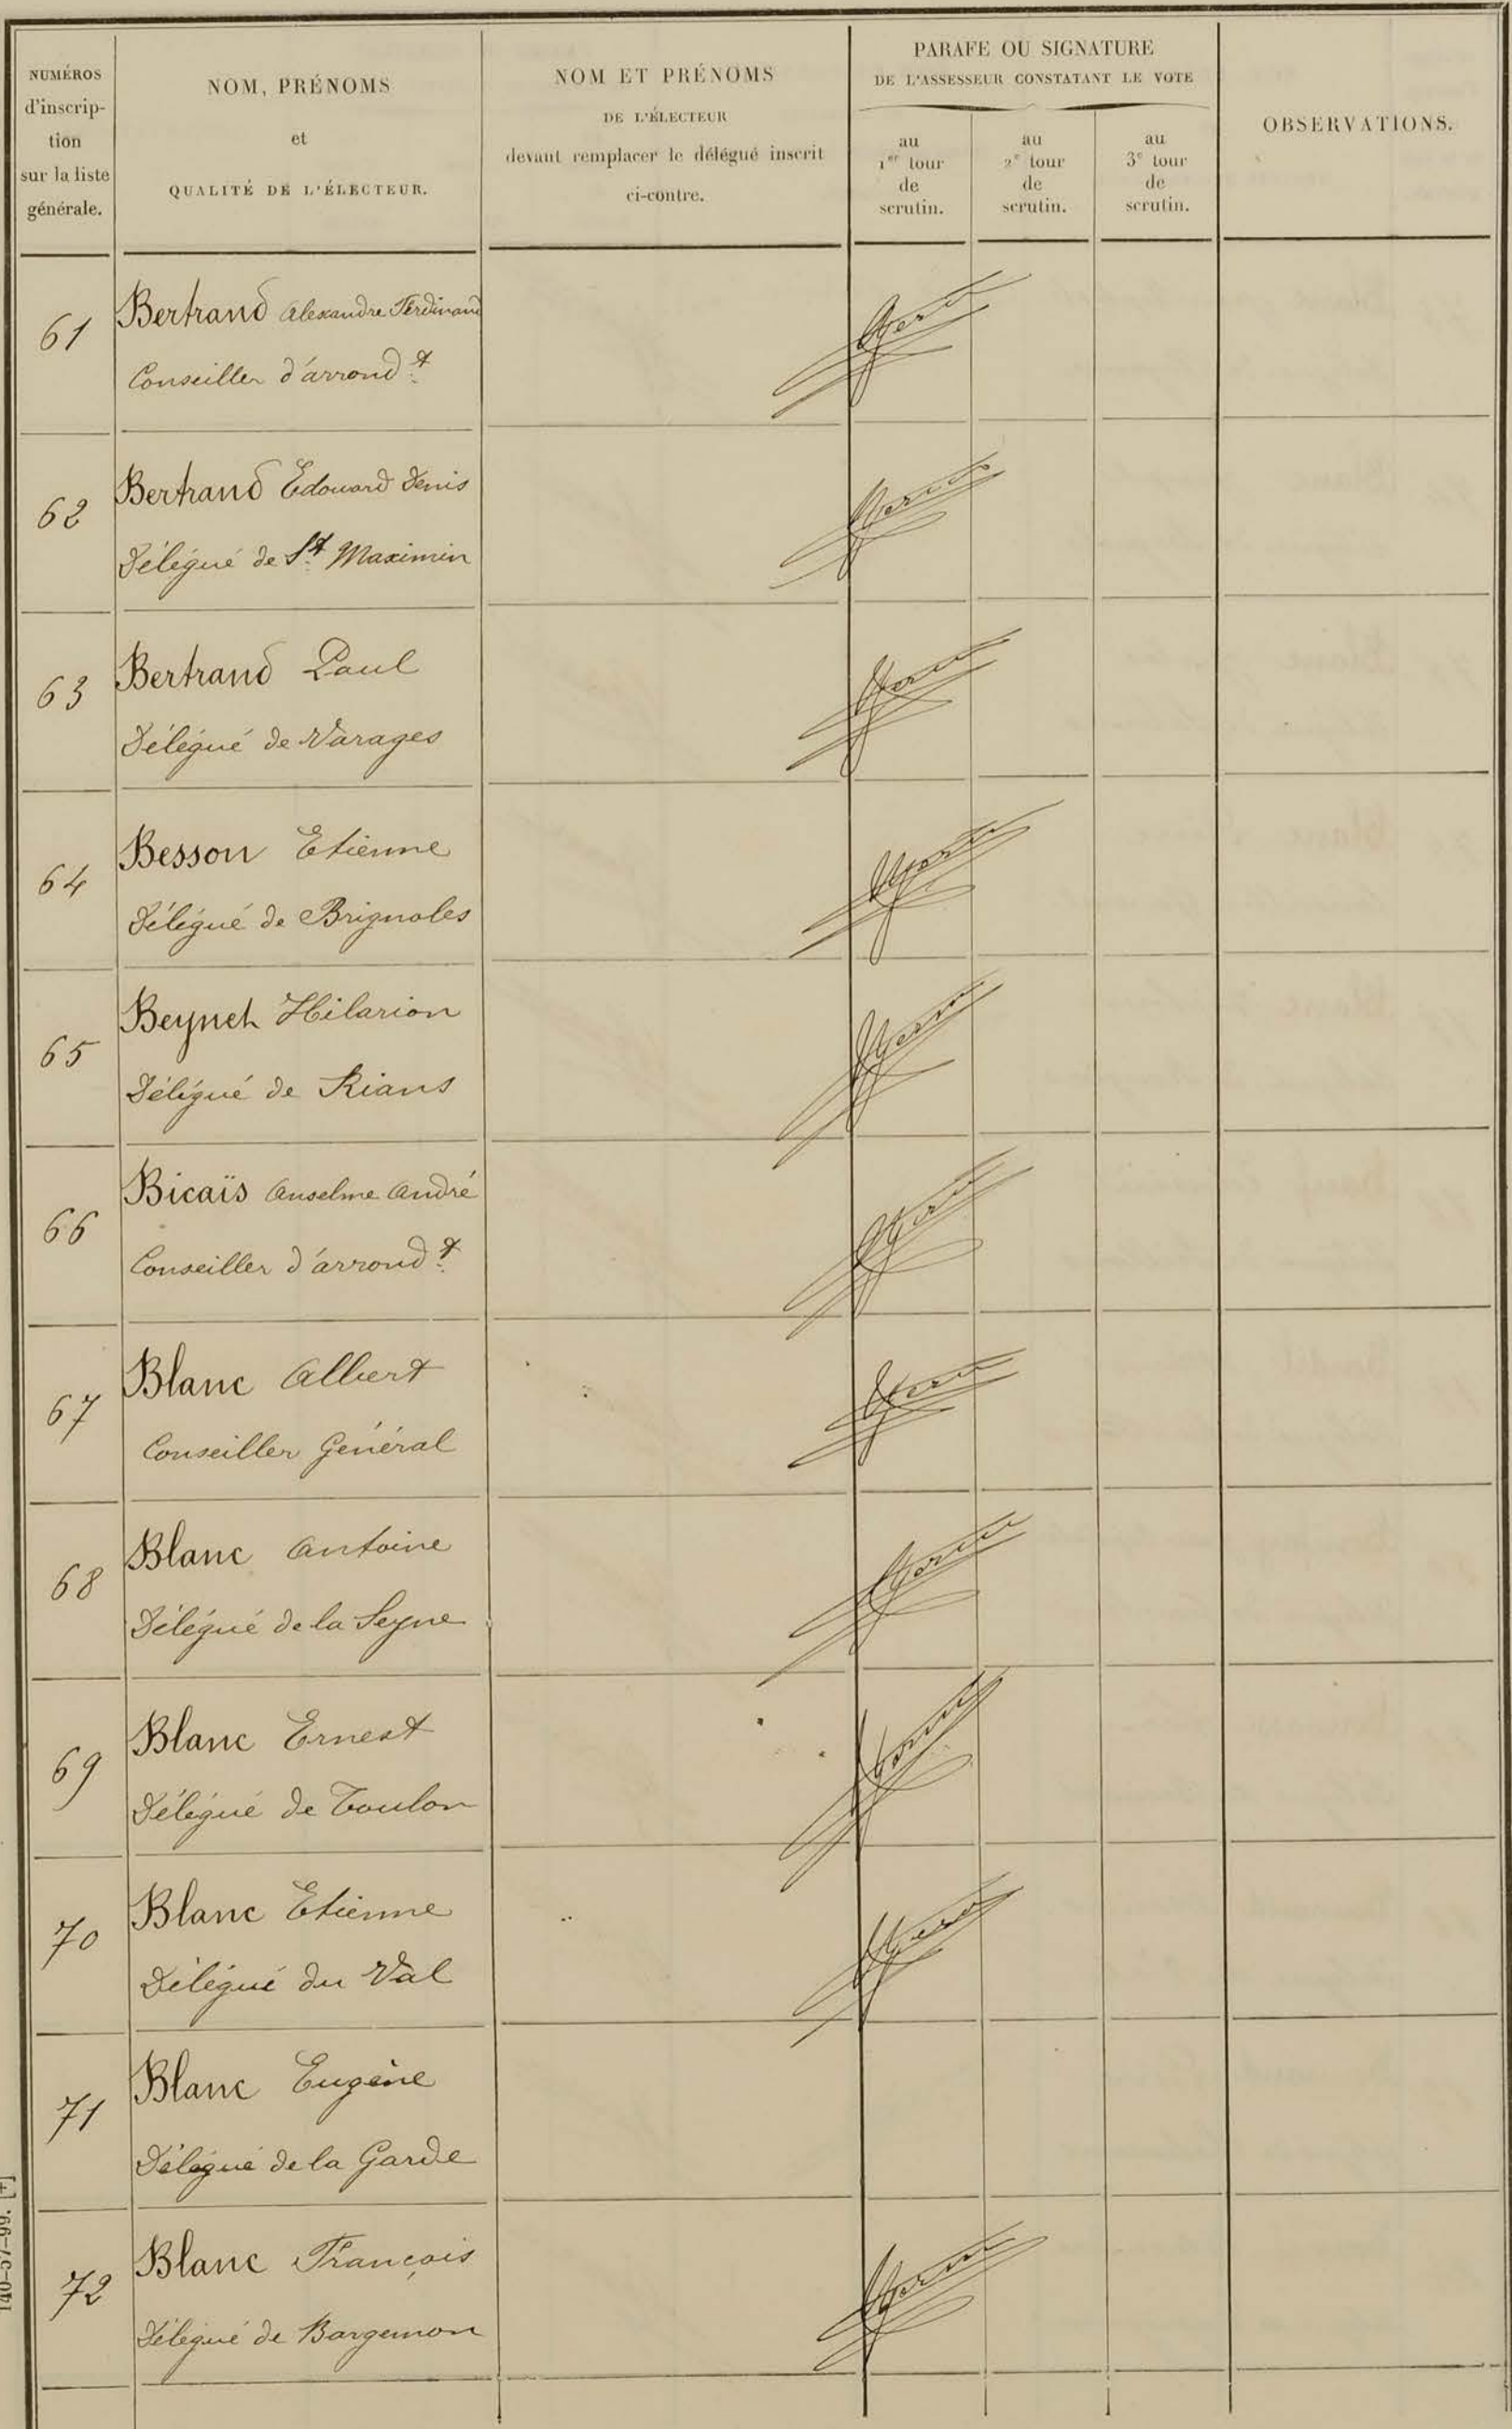 NUMÉROS
d'inscrip-
tion
sur la liste
générale.
NOM, PRÉNOMS
et
QUALITÉ DE L'ÉLECTEUR.
NOM ET PRÉNOMS
DE L'ÉLECTEUR
devant remplacer le délégué inscrit
ci-contre.
PARAFE OU SIGNATURE
DE L'ASSESSEUR CONSTATANT LE VOTE
au
1er tour
de
scrutin.
au
2e tour
de
scrutin.
au
3e tour
de
scrutin.
OBSERVATIONS.
61
Bertrand Alexandre Ferdinand
Conseiller d'arrondt
62
Bertrand Edouard Denis
Délégué de St Maximin
63
Bertrand Paul
Délégué de Varages
64
Besson Etienne
Délégué de Brignoles
65
Beynet Hilarion
Délégué de Rians
66
Bicaïs Anselme André
Conseiller d'arrondt
67
Blanc Albert
Conseiller Général
68
Blanc Antoine
Délégué de la Seyne
69
Blanc Ernest
Délégué de Toulon
70
Blanc Etienne
Délégué du Val
71
Blanc Eugène
Délégué de la Garde
72
Blanc François
Délégué de Bargemon
140-57-99. [+]